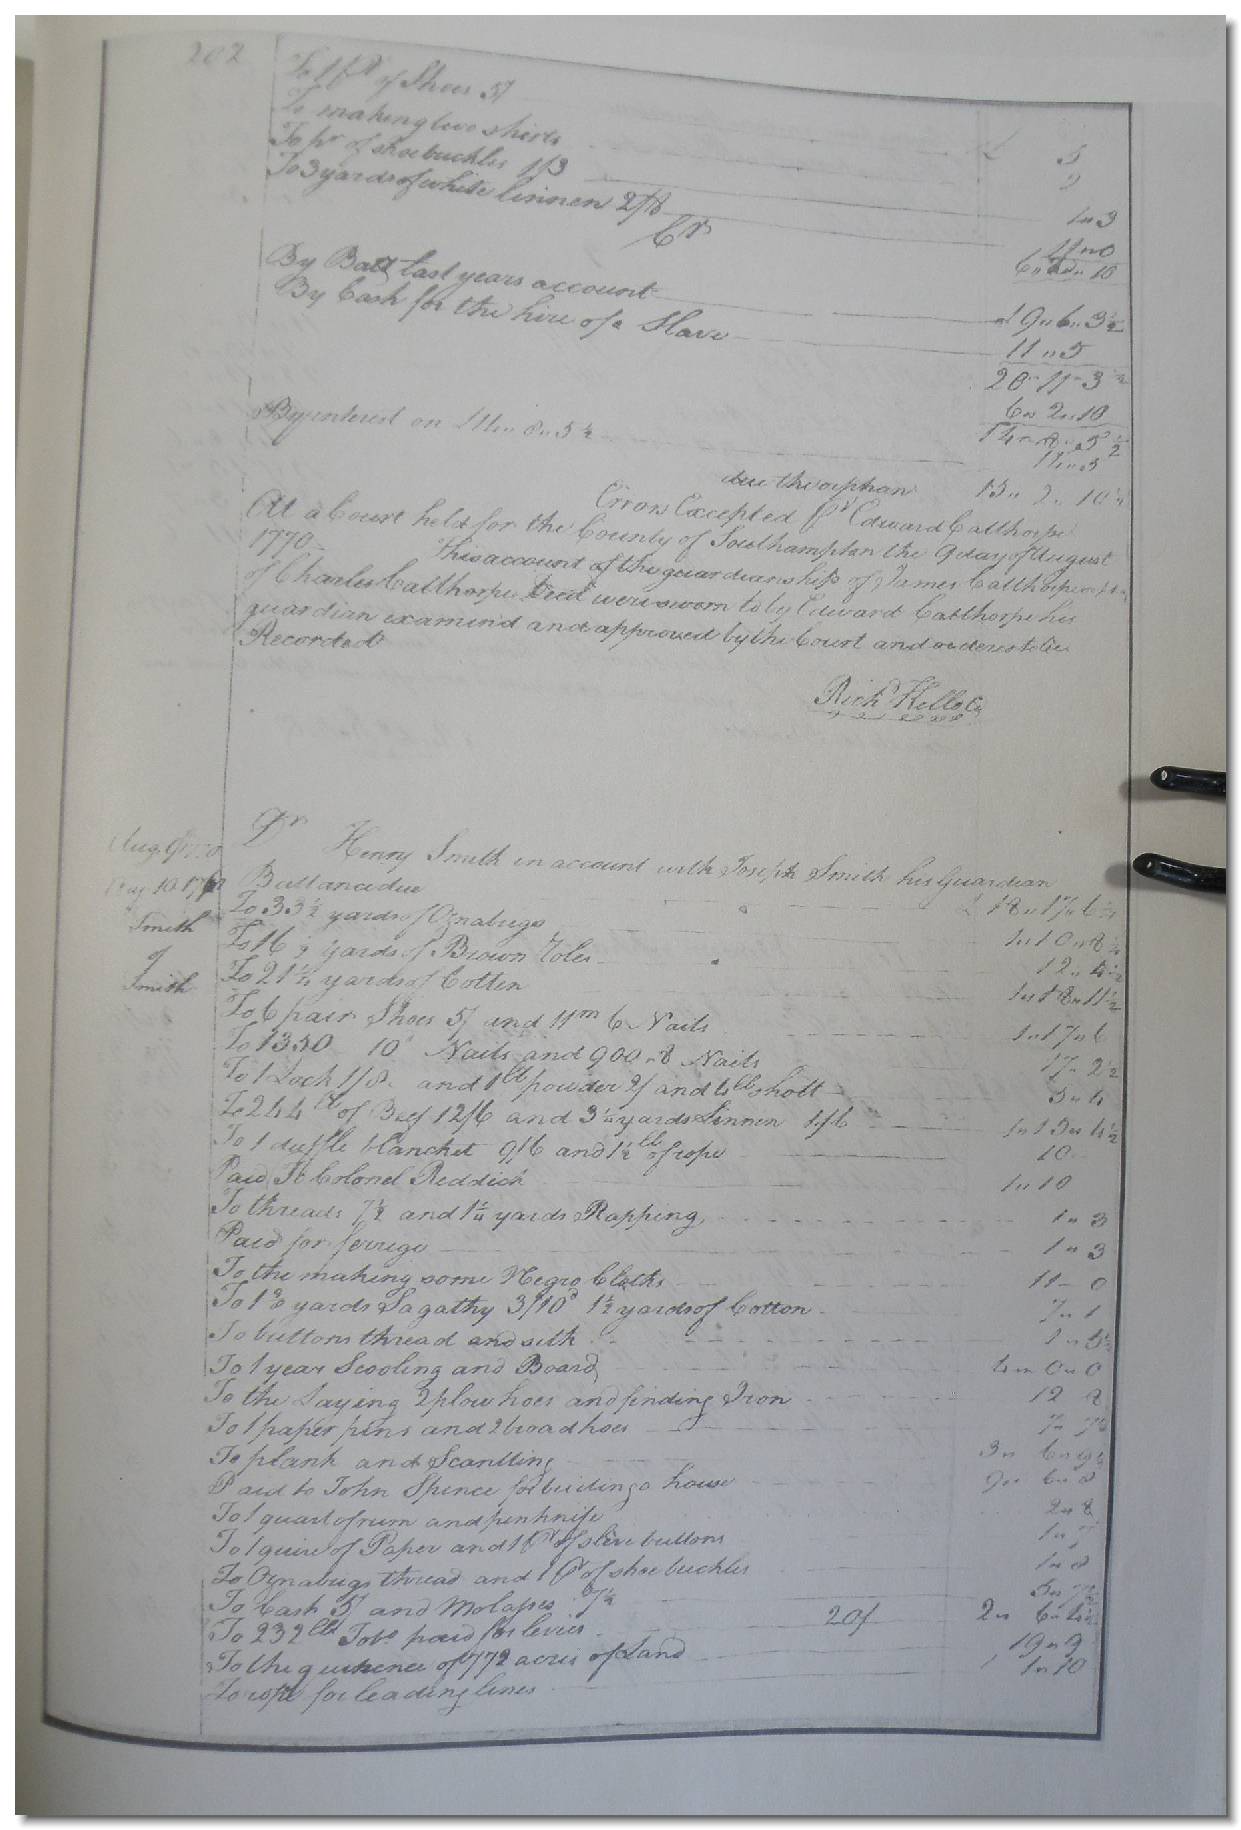 202
To 1 pr of Shoes 5/ £ 5
To making two shirts 2
To pr of shoebuckles 1/3 1 " 3
To 3 yards of white linnen 2/8
Cr 6 " 2 " 10
By Ball last years account £ 9 " 6 " 3½
By Cash for the hire of a Slave 11 " 5
20 - 11 - 3½
6 " 2 " 10
By interest on 14 " 8 " 5½
due the orphan 15 " 2 " 10½
Errors Excepted Pr Edward Calthorpe
At a Court held for the County of Southampton the 9 day of August
1770 This account of the guardianship of James Calthorpe
of Charles Calthorpe Decd were sworn to by Edward Calthorpe his
guardian examind and approved by the Court and orderes to be
Recorded
Richd Kello Cl
Dr Henry Smith in account with Joseph Smith his Guardian
Aug. 9 1770
Ballance due £ 18 " 17 " 6½
To 33½ yards of Oznabugs 1 " 10 " 8½
Smith
To 16 yards of Brown Roles 12 " 4½
of
To 21¼ yards of Cotten 1 " 18 " 11½
Smith
To 6 pair Shoes 5/ and 11m 6 Nails 1 " 17 " 6
To 1350 10d Nails and 900 " 8 Nails 17 " 2½
To 1 Lock 1/8 and 1 lb powder 2/ and 4 lb shott 5 " 4
To 244 lb of Beef 12/6 and 3¼ yards Linnen 1/6 1 " 15 " 4½
To 1 duffle blancket 9/6 and 1½ lb of rope 10
Paid To Colonel Reddick 1 " 10
To threads 7½ and 1¼ yards Rapping 1 " 3
Paid for ferrige 1 " 3
To the making some Negro Cloths 11 - 0
To yards Sagathy 3/10d 1½ yards of Cotton 7 " 1
To buttons thread and silk 1 " 5½
To 1 year Scooling and Board 4 " 0 " 0
To the Laying 2 plow hoes and finding Iron 12 8
To 1 paper pins and 2 broad hoes 7 " 7½
To plank and Scantling 3 " 6 " 9½
Paid to John Spence for builing a house 9 " 6 " 8
To 1 quart of rum and penknife 2 " 8
To 1 quire of Paper and 1 Pr of slive buttons 1 " 7
To Oznabugs thread and 1 Pr of shoebuckles 1 " 8
To Cash 5/ and Molasses 7½ 5 " 7½
To 232 lb Tobo paid for levies 20/ 2 " 6 "
To the quitrence of 772 acres of Land 19 " 9
To rope for leading lines 1 " 10